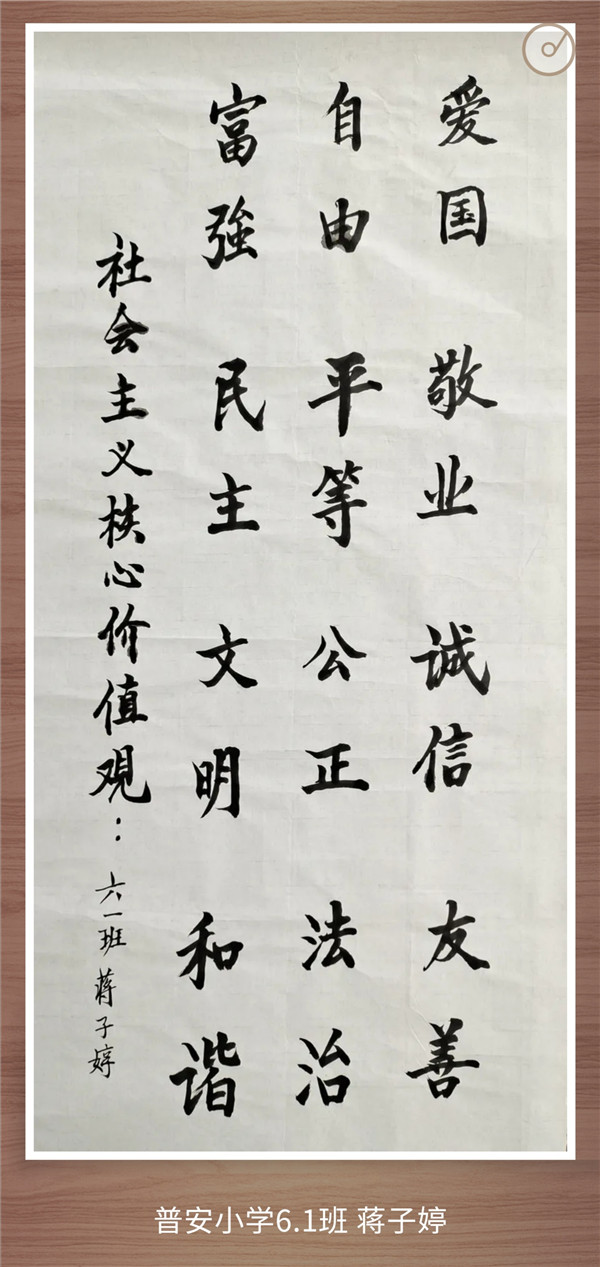 社会主义核心价值观：
六一班 蒋子婷
富強 民主 文明 和谐
自由 平等 公正 法治
爱国 敬业 诚信 友善
普安小学6.1班 蒋子婷